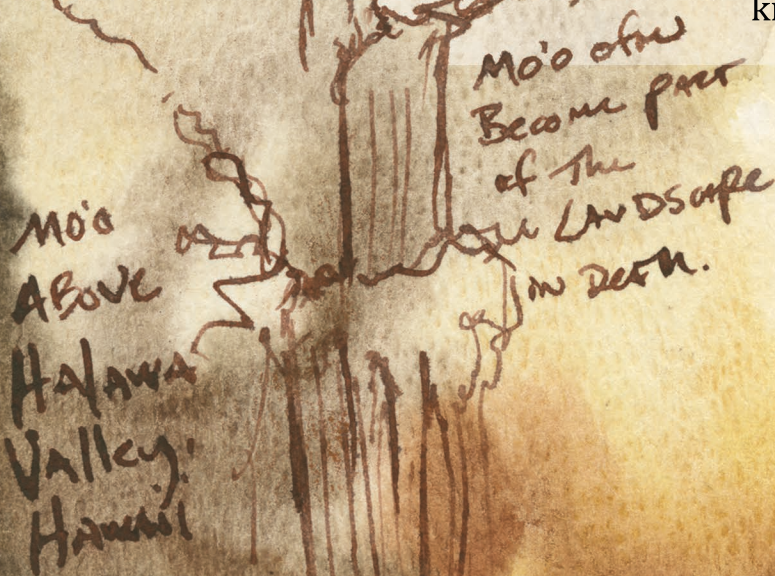 Mo'o ofte
Become part
of The
LANDSCAPE
in DeATh.
Mo'o
ABOVE
HAlAWA
Valley.
HAWAii